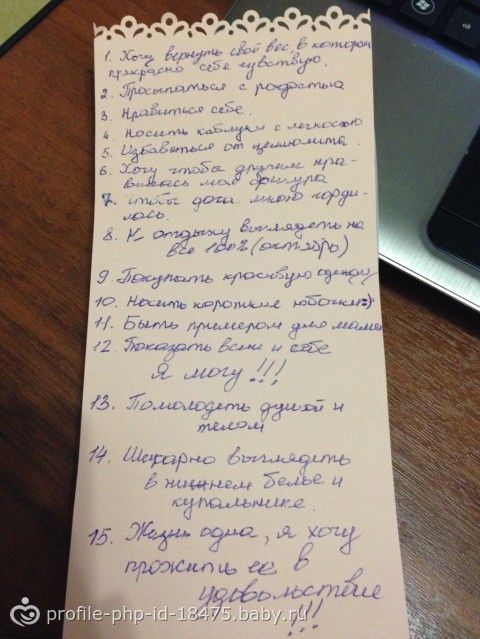 1. Хочу вернуть свой вес, в котором
прекрасно себя чувствую.
2. Просыпаться с радостью
3. Нравиться себе.
4. Носить каблуки с легкостью
5. Избавиться от целлюлита.
6. Хочу чтобы другим нра-
вилась моя фигура
7. чтобы дочь мною горди-
лась.
8. К отдыху выглядеть на
все 100% (октябрь)
9. Покупать красивую одежду
10. Носить короткие юбочки :)
11. Быть примером для мамы
12. Показать всем и себе
Я могу!!!
13. Помолодеть душой и
телом
14. Шикарно выглядеть
в нижнем белье и
купальнике.
15. Жизнь одна, я хочу
прожить ее в
удовольствие
!!!
profile-php-id-18475.baby.ru